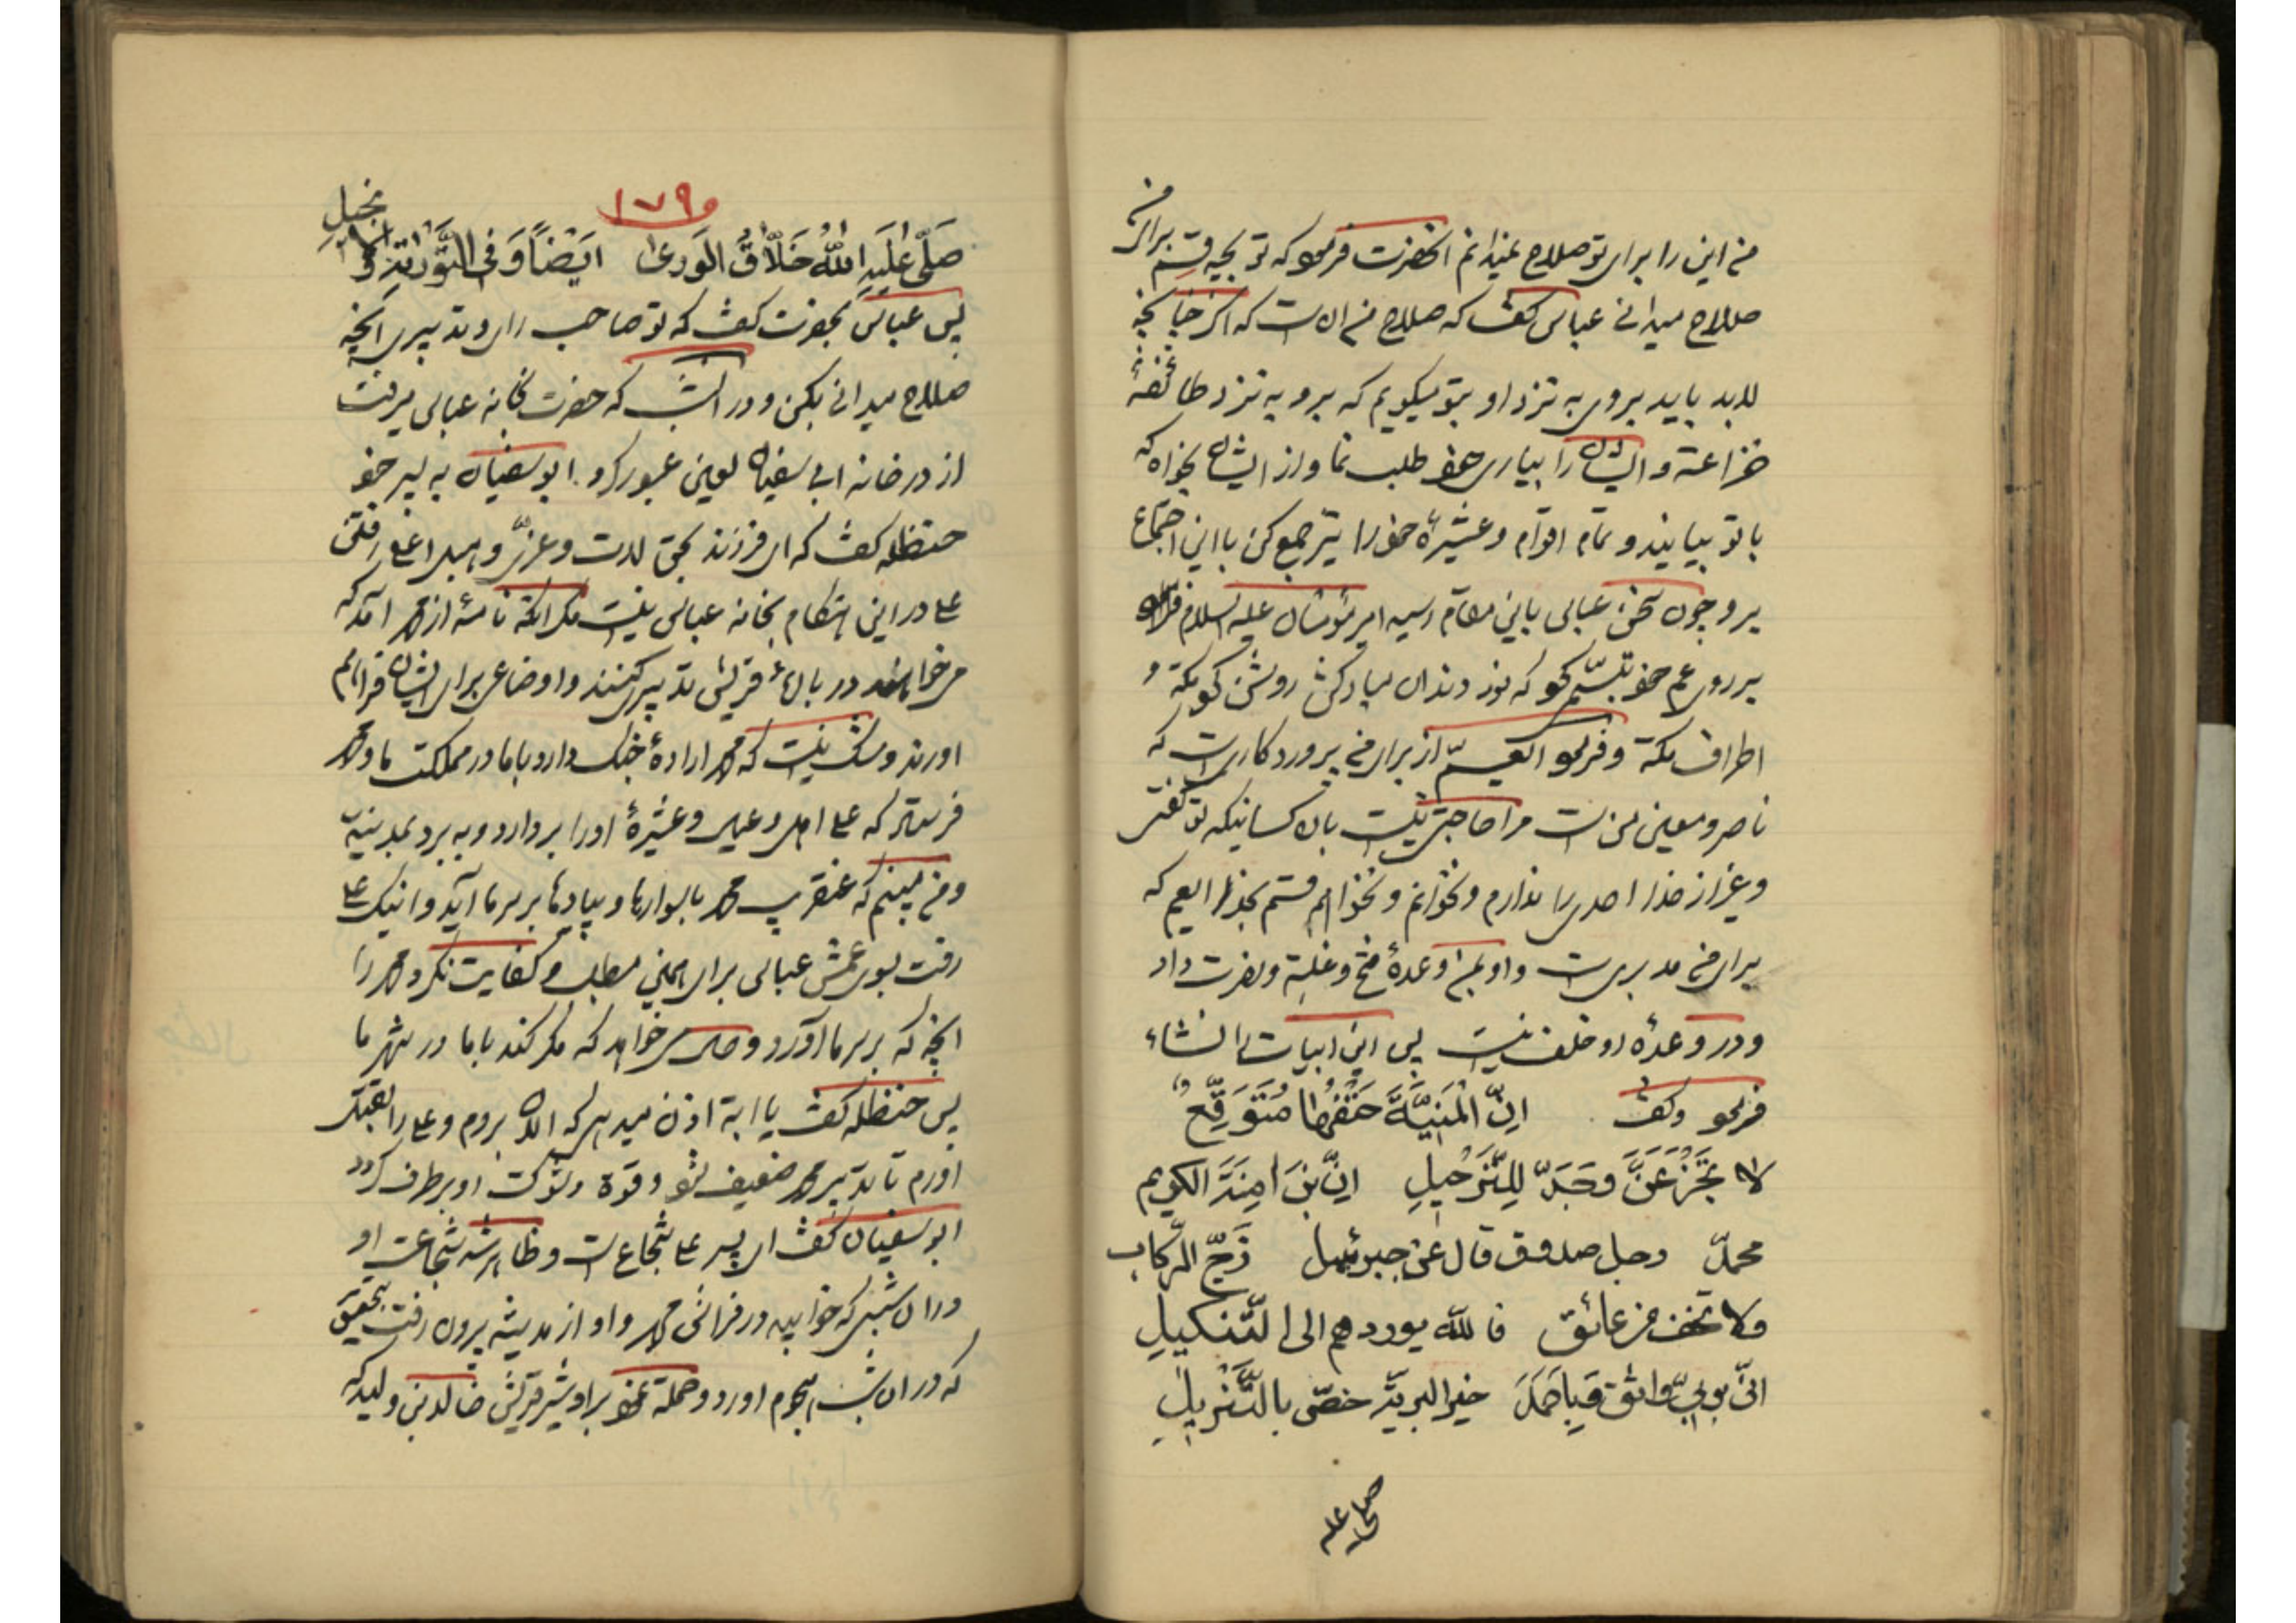 من این را برای تو صلاح نمیدانم انحضرت فرمود که تو بچه قسم برای من
صلاح میدانی عباس گفت که صلاح من ان است که اگر چنانچه
لابد باید بروی به نزد او بتو میگویم که برو به نزد طائفهٔ
خزاعة و ایشان را بیاری خود طلب نما و از ایشان بخواه که
با تو بیایند و تمام اقوام و عشیرهٔ خود را نیز جمع کن با این اجتماع
برو چون سخن عباس باین مقام رسید امیر مؤمنان علیه السلام
بر روی عم خود تبسّم نمود که نور دندان مبارکش روشن نمود مکة و
اطراف مکة و فرمود ای عم از برای من پروردگاری است که
ناصر و معین من است مرا حاجتی نیست بان کسانیکه تو گفتی
و غیر از خدا احدی را ندارم و نخوانم و نخواهم قسم بخدا ای عم که
برای من مدبری است و او بمن وعدهٔ فتح و غلبة و نصرت داد
و در وعدهٔ او خلف نیست پس این ابیات را انشاء
فرمود و گفت انّ المَنِیَّةَ حَتْفُها مُتَوَقِّعٌ
لا تَجْزَعَنَّ وَجَدَّ لِلتَّرَحُّیلِ اِنَّ بنَ امِنَةَ الکریم
محمدّ رجل صدوق قال عن جبرئیل زجّ الرّکاب
ولا تخف من عائق فالله یوردهم الی التّنکیلِ
انّی بربّی واثق وَبِاَحمَدَ خیر البریّة خصّ بالتَّنزیلِ
صلی علیه
۱۷۹
صَلّی عَلَیهِ اللهُ خَلّاقُ الوَری ایَضْاً وَ فی التَّوریٰةِ وَ الانجیلِ
پس عباس بحضرت گفت که تو صاحب رای و تدبیری انچه
صلاح میدانی بکن و در انشب که حضرت بخانه عباس میرفت
از در خانه ابی سفیان لعین عبور کرد ابو سفیان به پسر خود
حنظله گفت که ای فرزند بحق لات و عزّی و هبل اعلی رفتن
علی در این هنگام بخانه عباس نیست مگر انکه نامهٔ از محمد امده که
میخواهند در باب قریش تدبیری کنند و اوضاعی برای ایشان فراهم
اورند و شک نیست که محمد ارادهٔ جنک دارد با ما در مملکت ما و محمد
فرستاده که علی اهل و عیال و عشیرهٔ او را بردارد و به برد بمدینه
و من میبینم که عنقریب محمد با سوارها و پیادها بر سر ما آید و اینک علی
رفت بسوی عمش عباس برای همین مطلب و کفایت نکرد محمد را
انچه که بر سر ما آورد و حال میخواهد که مکر کند با ما در شهر ما
پس حنظله گفت یا ابة اذن میدهی که الان بروم و علی را بقتل
اورم تا تدبیر محمد ضعیف شود و قوة و شوکت او بر طرف گردد
ابو سفیان گفت ای پسر علی شجاع است و ظاهر شد شجاعت او
در ان شبی که خوابید در فراش محمد و او از مدینه بیرون رفت بتحقیق
که در ان شب هجوم اورد و حملة نمود بر او شیر قریش خالد بن ولید که